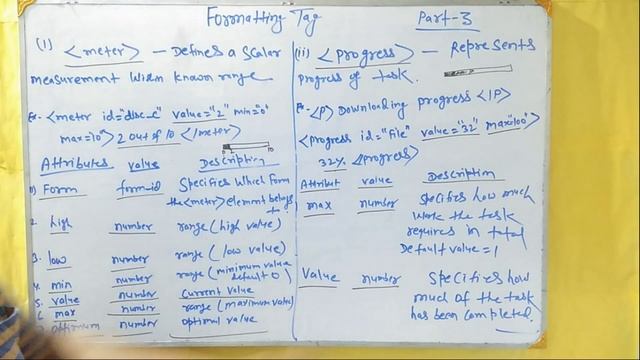 Formatting Tag Part-3
(i) <meter> - Defines a scalar
measurement within known range
Ex- <meter id="disc_c" value="2" min="0"
max="10"> 2 out of 10 </meter>
0 2 10
Attributes value Description
1) Form form-id Specifies which form
the <meter> element belogs
to
2. high number range (high value)
3. low number range (low value)
4. min number range (minimum value
default 0)
5. value number current value
max number range (maximum value)
optimum number optimal value
(ii) <progress> - Represents
progress of task.
Ex- <P> Downloading progress </P>
<progress id="file" value="32" max="100">
32% <progress>
Attribut value Description
max number Specifies how much
work the task
requires in total
Default value = 1
Value number Specifies how
much of the task
has been completed.